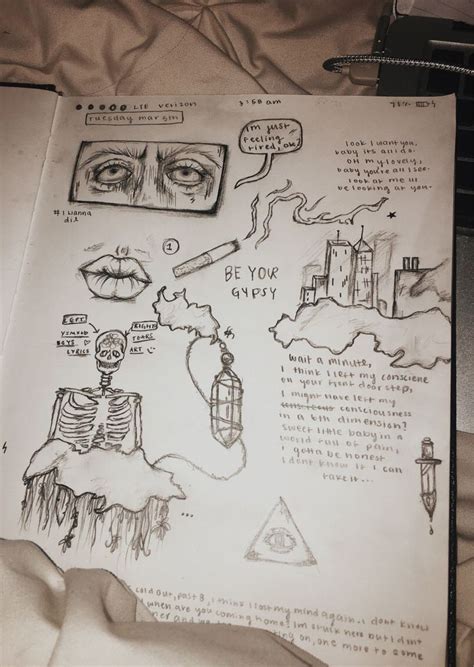 LTE verizon 3:58 am 75%
tuesday mar 5th
Im just
feeling
tired, ok.
# I wanna
die
look I want you,
baby its all i do.
oh my lovely,
baby you're all I see.
look at me ill
be looking at you.
1
BE YOUR
GYPSY
LEFT
BOYS
LYRICS
RIGHT
TEARS
ART
wait a minute,
I think I left my consciene
on your front door step,
I might have left my
consciousness
in a 6th dimension?
sweet little baby in a
world full of pain,
I gotta be honest
I dont know if I can
take it...
...
cold out, past 3, i think i lost my mind again. i dont know
when are you coming home? Im stuck here but i dont
and on, one more to some